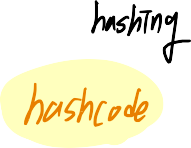 hashing
hashcode